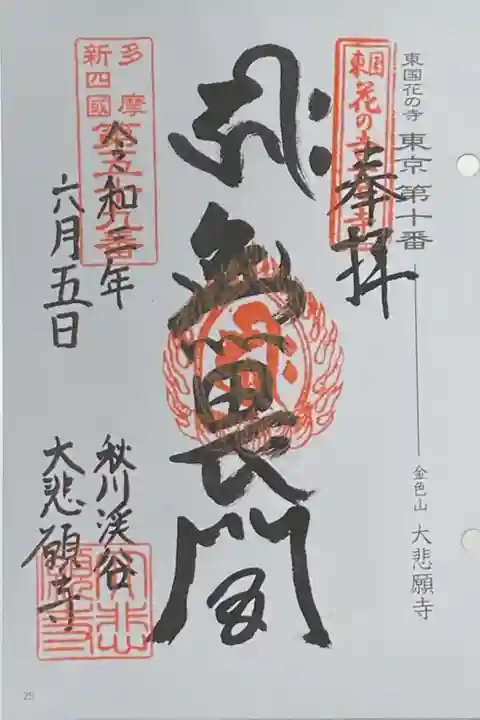 東国花の寺 東京 第十番
金色山 大悲願寺
奉拝
無畏閣
多摩
新四國
令和三年
六月五日
秋川渓谷
大悲願寺
25